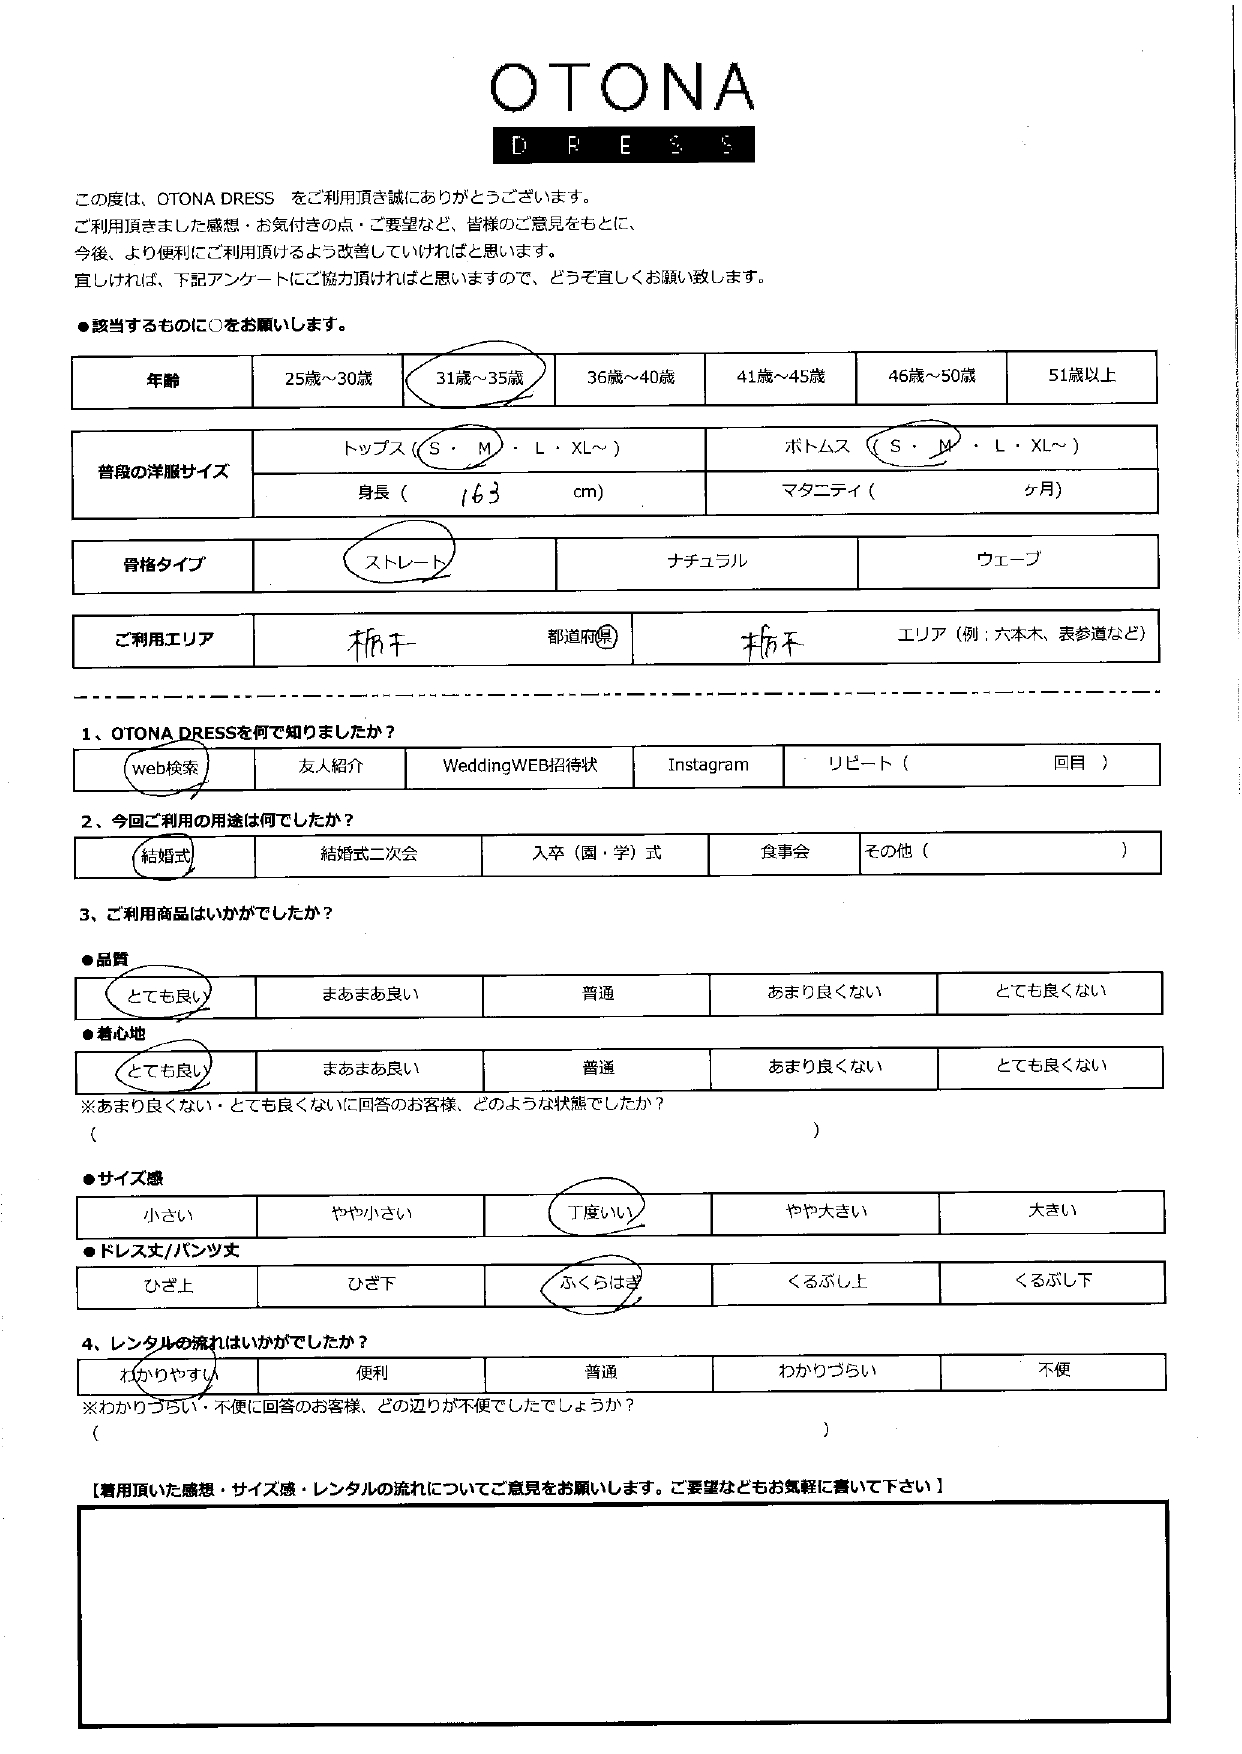 OTONA
DRESS
この度は、OTONA DRESS をご利用頂き誠にありがとうございます。
ご利用頂きました感想・お気付きの点・ご要望など、皆様のご意見をもとに、
今後、より便利にご利用頂けるよう改善していければと思います。
宜しければ、下記アンケートにご協力頂ければと思いますので、どうぞ宜しくお願い致します。
●該当するものに○をお願いします。
年齢 25歳～30歳 31歳～35歳 36歳～40歳 41歳～45歳 46歳～50歳 51歳以上
普段の洋服サイズ トップス ( S ・ M ・ L ・ XL～ ) ボトムス ( S ・ M ・ L ・ XL～ )
身長 ( 163 cm) マタニティ ( ヶ月)
骨格タイプ ストレート ナチュラル ウェーブ
ご利用エリア 栃木 都道府県 栃木 エリア（例：六本木、表参道など）
1、OTONA DRESSを何で知りましたか？
web検索 友人紹介 WeddingWEB招待状 Instagram リピート（ 回目 ）
2、今回ご利用の用途は何でしたか？
結婚式 結婚式二次会 入卒（園・学）式 食事会 その他（ ）
3、ご利用商品はいかがでしたか？
●品質
とても良い まあまあ良い 普通 あまり良くない とても良くない
●着心地
とても良い まあまあ良い 普通 あまり良くない とても良くない
※あまり良くない・とても良くないに回答のお客様、どのような状態でしたか？
（ ）
●サイズ感
小さい やや小さい 丁度いい やや大きい 大きい
●ドレス丈/パンツ丈
ひざ上 ひざ下 ふくらはぎ くるぶし上 くるぶし下
4、レンタルの流れはいかがでしたか？
わかりやすい 便利 普通 わかりづらい 不便
※わかりづらい・不便に回答のお客様、どの辺りが不便でしたでしょうか？
（ ）
【着用頂いた感想・サイズ感・レンタルの流れについてご意見をお願いします。ご要望などもお気軽に書いて下さい】